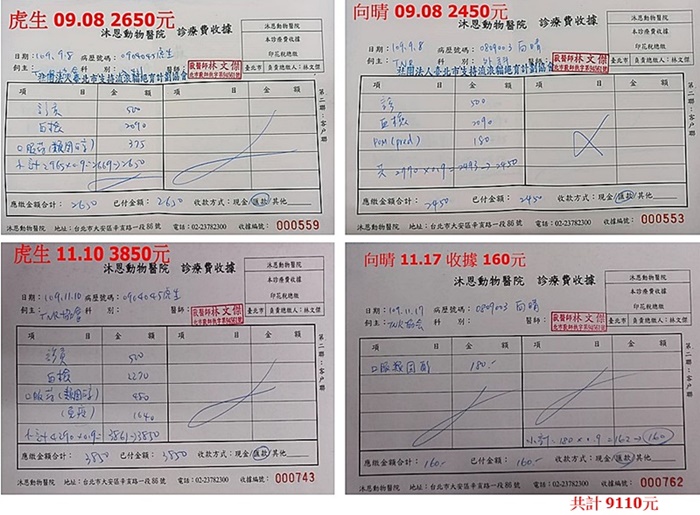 虎生 09.08 2650元
沐恩動物醫院 診療費收據
沐恩動物醫院
本診療費收據
印花稅總繳
臺北市 負責總繳人:林文傑
日期:109.9.8 病歷號碼:0904045虎生
飼主: 科 別: 醫師:
獸醫師 林文傑
社團法人臺北市支持流浪貓絕育計劃協會
項 目 金 額 項 目 金 額
診察 500
血檢 2090
口服藥(類固醇) 375
小計2965×0.9=2669→2650
第二聯:客戶聯
應繳金額合計: 2650 已付金額: 2650 收款方式:現金/匯款/其他
電話:02-23782300 地址:台北市大安區辛亥路一段86號 收據編號: 000559
向晴 09.08 2450元
沐恩動物醫院 診療費收據
沐恩動物醫院
本診療費收據
印花稅總繳
臺北市 負責總繳人:林文傑
日期:109.9.8 病歷號碼:0809003 向晴
飼主:TNR 科 別: 醫師:
獸醫師 林文傑
社團法人臺北市支持流浪貓絕育計劃協會
項 目 金 額 項 目 金 額
診 500
血檢 2090
(pred) 180
共 2770×0.9=2493→2450
第二聯:客戶聯
應繳金額合計: 2450 已付金額: 2450 收款方式:現金/匯款/其他
沐恩動物醫院 地址:台北市大安區辛亥路一段86號 電話:02-23782300 收據編號: 000553
虎生 11.10 3850元
沐恩動物醫院 診療費收據
沐恩動物醫院
本診療費收據
印花稅總繳
臺北市 負責總繳人:林文傑
日期:109.11.10 病歷號碼:0904045虎生
飼主:TNR協會 科 別: 醫師:
獸醫師 林文傑
項 目 金 額 項 目 金 額
診察 500
血檢 2270
口服藥(類固醇) 480
1040
小計4290×0.9=3861→3850
第二聯:客戶聯
應繳金額合計: 3850 已付金額: 3850 收款方式:現金/匯款/其他
沐恩動物醫院 地址:台北市大安區辛亥路一段86號 電話:02-23782300 收據編號: 000743
向晴 11.17 收據 160元
沐恩動物醫院 診療費收據
沐恩動物醫院
本診療費收據
印花稅總繳
臺北市 負責總繳人:林文傑
日期:109.11.17 病歷號碼:0809003 向晴
飼主:TNR協會 科 別: 醫師:
獸醫師 林文傑
項 目 金 額 項 目 金 額
口服類固醇 180.-
小計:180×0.9=162→160
第二聯:客戶聯
應繳金額合計: 160.- 已付金額: 160.- 收款方式:現金/匯款/其他
沐恩動物醫院 地址:台北市大安區辛亥路一段86號 電話:02-23782300 收據編號: 000762
共計 9110元